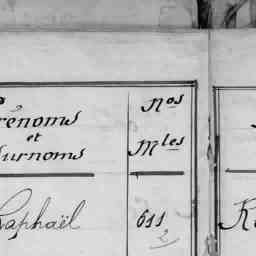 Prénoms
et
Surnoms
Nos
Mles
Raphaël
611
2